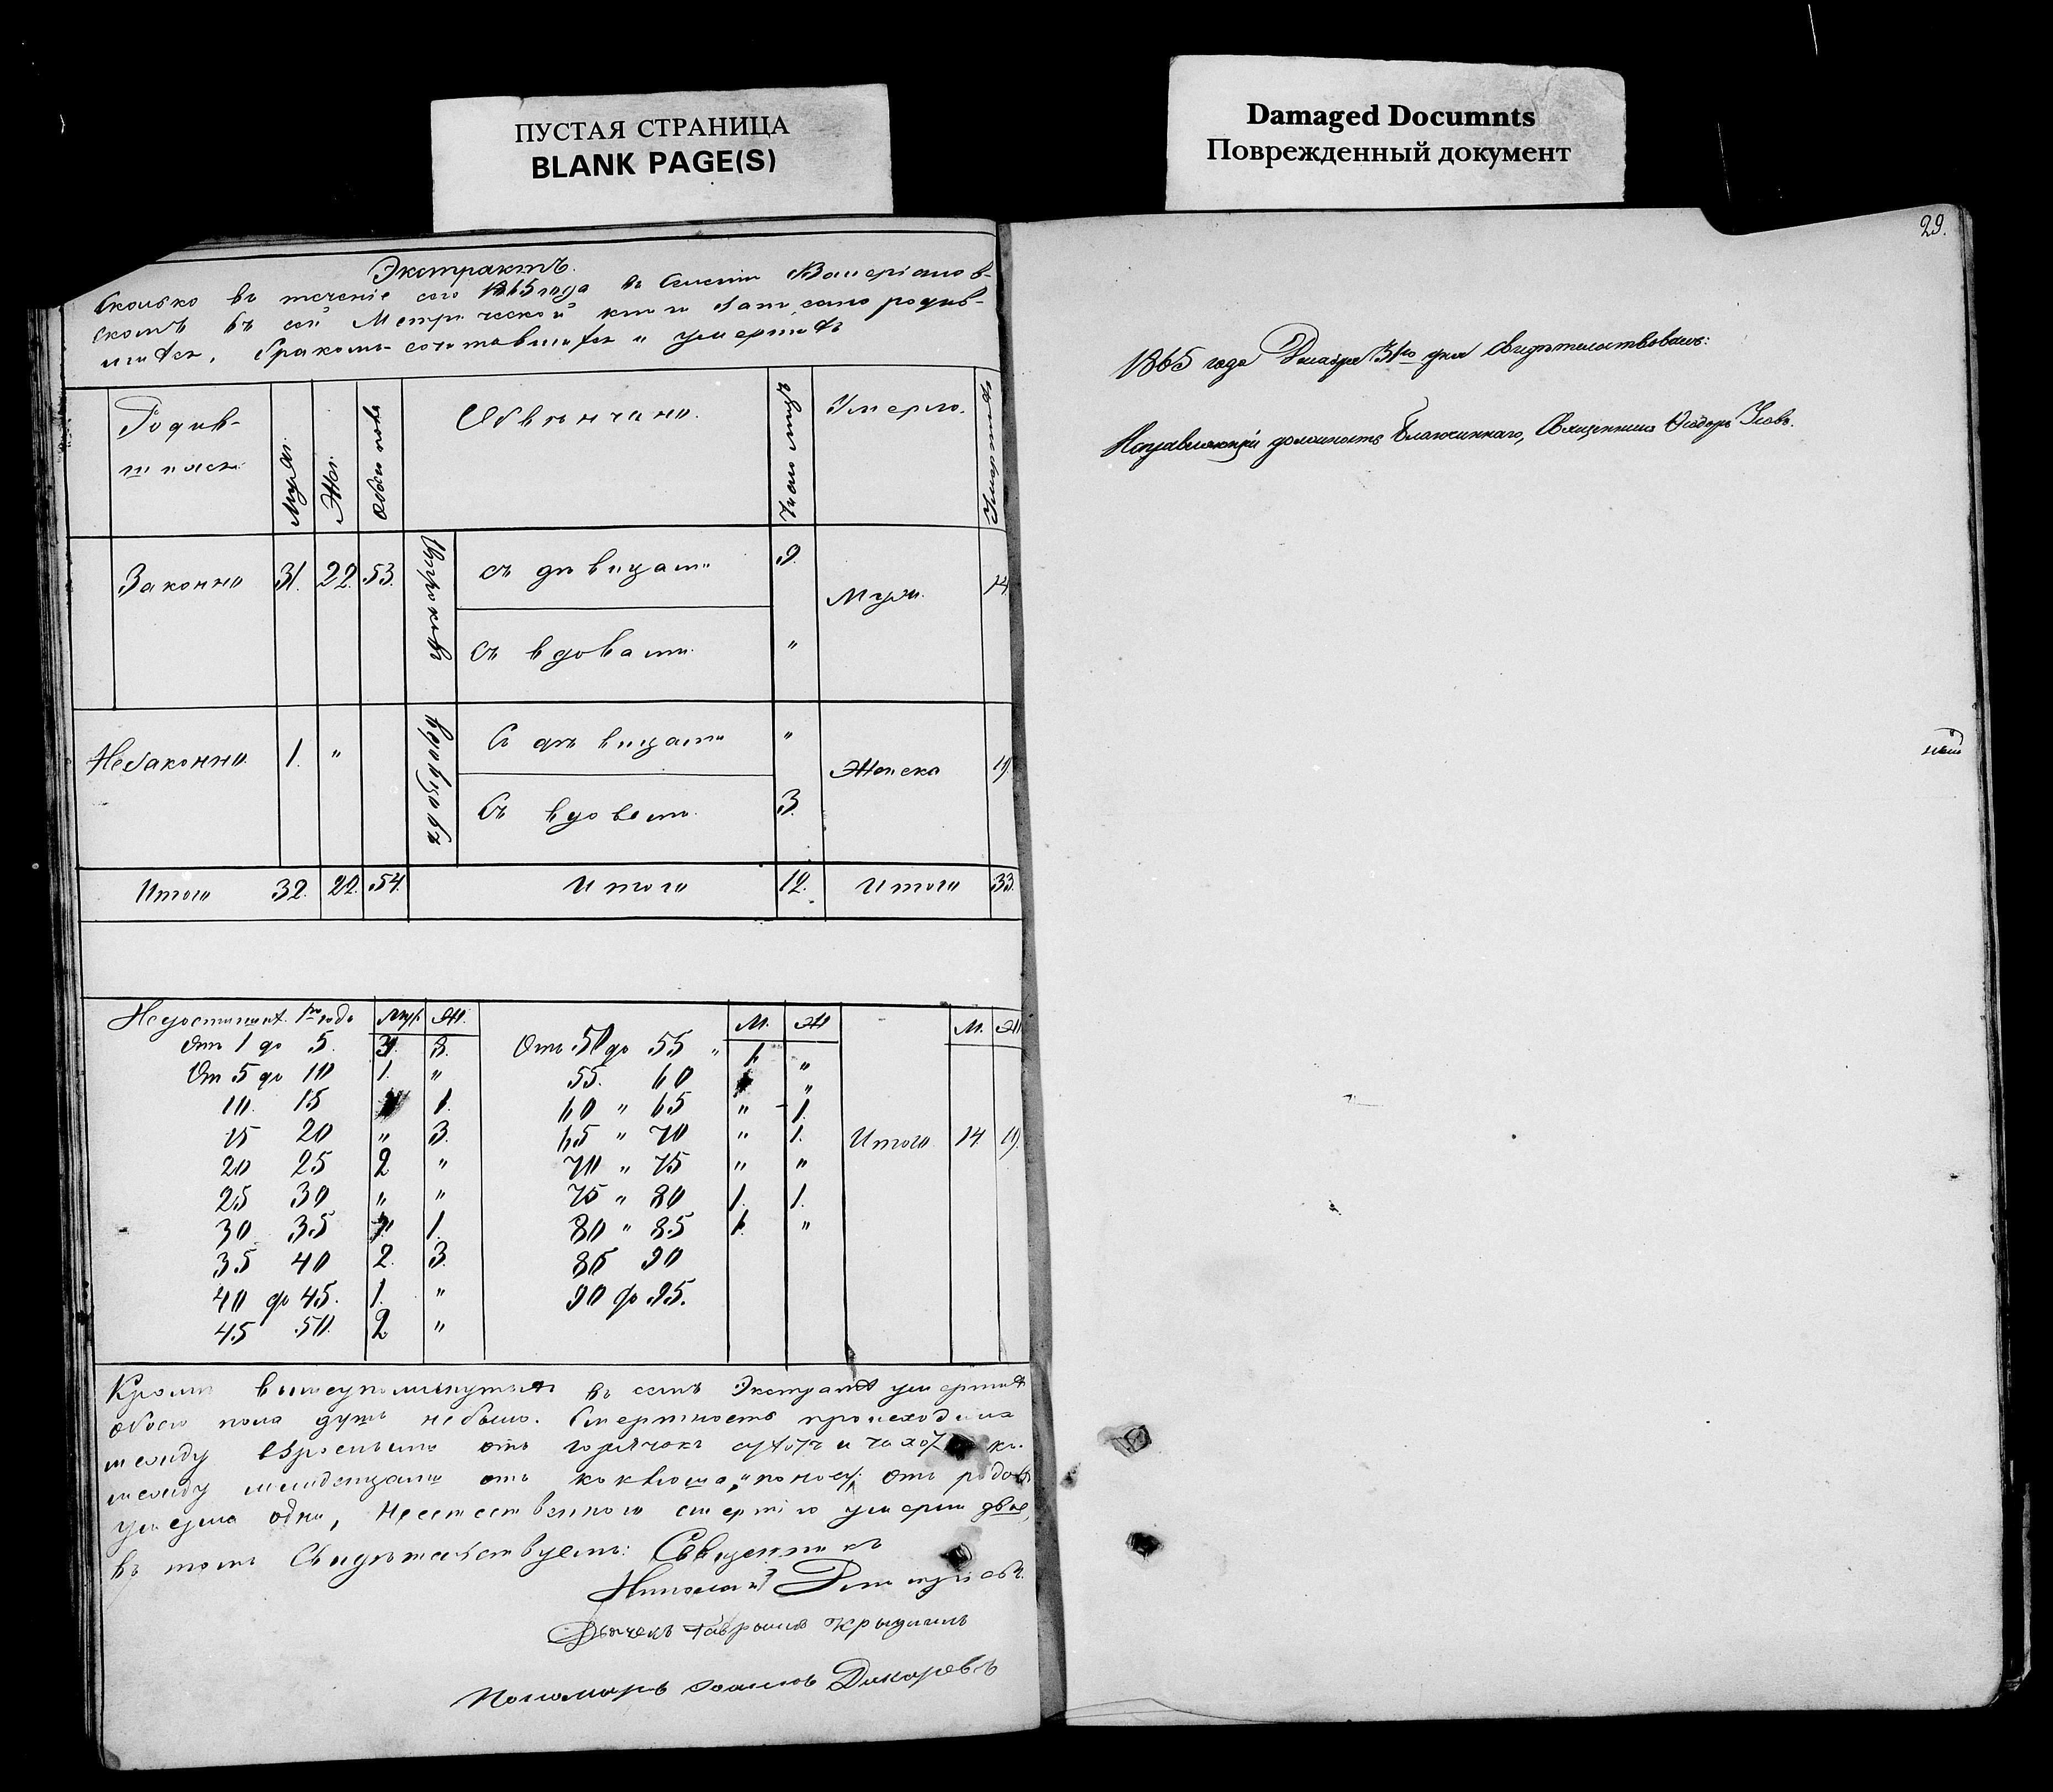 ПУСТАЯ СТРАНИЦА
BLANK PAGE(S)
Damaged Documnts
Поврежденный документ
29.
Экстрактъ.
Сколько въ теченіе сего 1865 года въ Селеніи Валеріанов-
скомъ въ сей Метрической книге записано родив-
шихся, бракомъ сочетавшихся и умершихъ
Родив-
шихся
Муж.
Жен.
Обоего пола
Обвенчано.
Число лицъ
Умерло.
Умершихъ
Законно 31. 22. 53.
Отроковъ
съ девицами 9.
съ вдовами "
Муж. 14
Незаконно 1. "
Вдовцовъ
Съ девицами "
Съ вдовами 3.
Женска 19.
Итого 32. 22. 54. Итого 12. Итого 33.
Муж. Ж. М. Ж М. Ж
Отъ 1 до 5. 3. От 50 до 55 " 1. "
От 5 до 10 1. " 55. 60 "
10. 15 1. 60 " 65 " 1.
15 20 " 3. 65 " 70 " 1. Итого 14 19.
20 25 2 " 70 " 75 " "
25 30 " " 75 " 80 1. 1.
30 35 " 1. 80 " 85 1. "
35 40 2. 3. 85 90
40 до 45. 1. " 90 до 95.
45 50. 2 "
Кроме вышеупомянутыхъ въ семъ Экстракте умершихъ
обоего пола душъ небыло. Смертность происходила
между взрослыми отъ горячекъ и
между младенцами отъ коклюша, и поносу, отъ родовъ
умерла одна, неестественною смертію умерли двое,
въ томъ Свидетельствуемъ: Священникъ
Николай Димитріевъ.
Дьячекъ Гавріилъ
Пономарь Дикаревъ
1865 года Декабря 31го дня Свидетельствовалъ:
Исправляющій должность Благочиннаго, Священникъ Ѳеодоръ